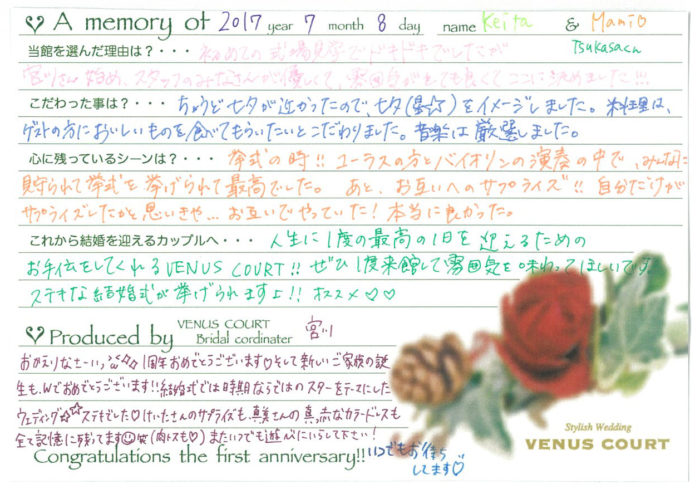 A memory of 2017 year 7 month 8 day name Keita & Mamio
Tsukasaくん
当館を選んだ理由は?・・・ 初めての式場見学でドキドキでしたが
宮川さん始め、スタッフのみなさんが優しくて、雰囲気がとても良くてここに決めました!!!
こだわった事は?・・・ ちょうど七夕が近かったので、七夕(星☆)をイメージしました。お料理は、
ゲストの方においしいものを食べてもらいたいとこだわりました。音楽は厳選しました。
心に残っているシーンは?・・・ 挙式の時!!コーラスの方とバイオリンの演奏の中で、みんなに
見守られて挙式を挙げられて最高でした。あと、お互いへのサプライズ!!自分だけが
サプライズしたかと思いきや…お互いでやっていた!本当に良かった。
これから結婚を迎えるカップルへ・・・ 人生に1度の最高の1日を迎えるための
お手伝をしてくれるVENUS COURT!!ぜひ1度来館して雰囲気を味わってほしいです。
ステキな結婚式が挙げられますよ!!オススメ♡♡
Produced by VENUS COURT Bridal cordinater 宮川
おかえりなさーいっ 1周年おめでとうございます♡そして新しいご家族の誕
生も、Wでおめでとうございます!!結婚式では時期ならではのスターをテーマにした
ウェディング☆☆ステキでした♡けいたさんのサプライズも、真美さんの真っ赤なカラードレスも
全て記憶に残ってます(肉トスも♡)またいつでも遊びにいらして下さい!
Congratulations the first anniversary!! いつでもお待ち
してます♡
Stylish Wedding
VENUS COURT